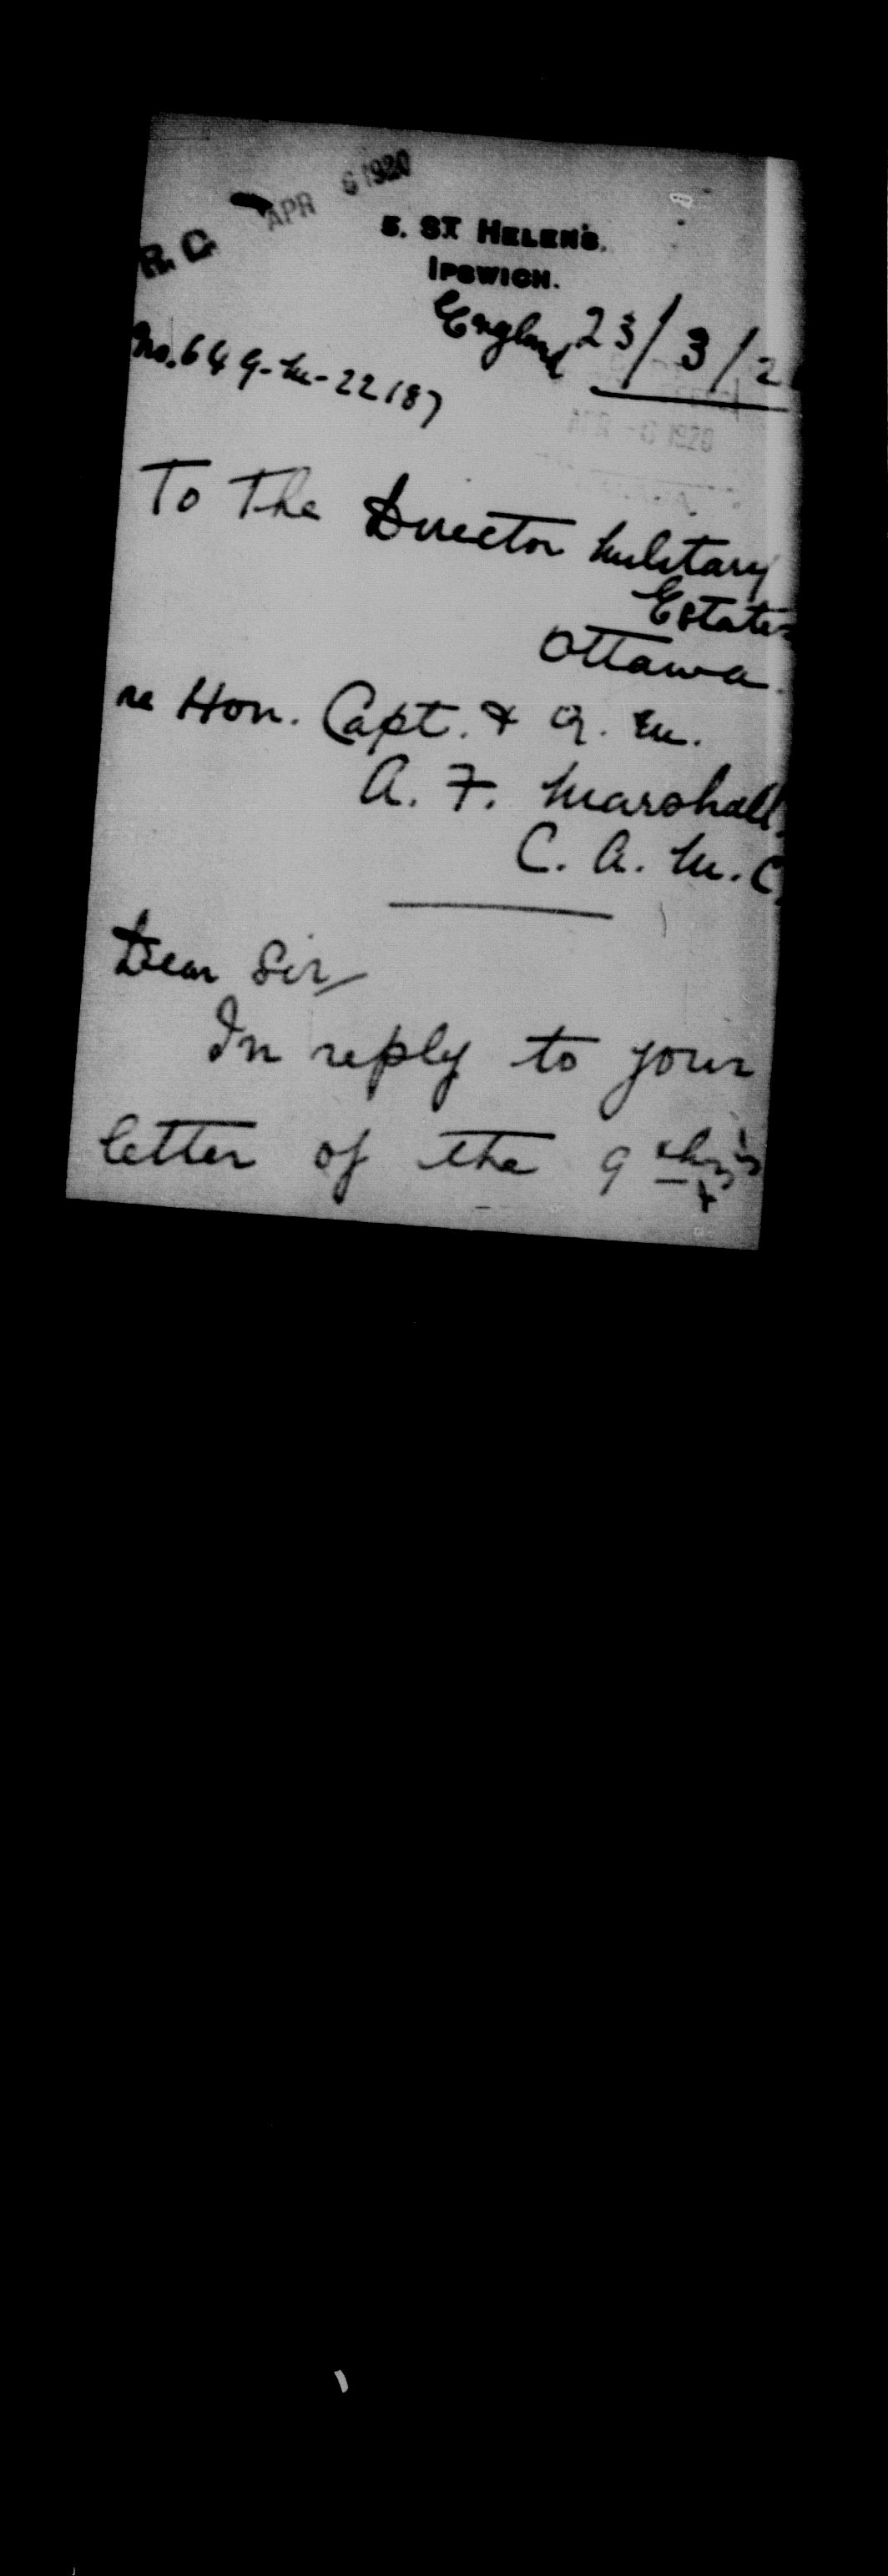 APR 6 1920
R. C.
5. ST HELEN'S.
IPSWICH.
England 23/3/2
No. 649-M-22187
APR -6 1920
To The Director Military
Estates
Ottawa.
re Hon. Capt. & Q. M.
A. F. Marshall.
C. A. M. C.
Dear Sir
In reply to your
letter of the 9th